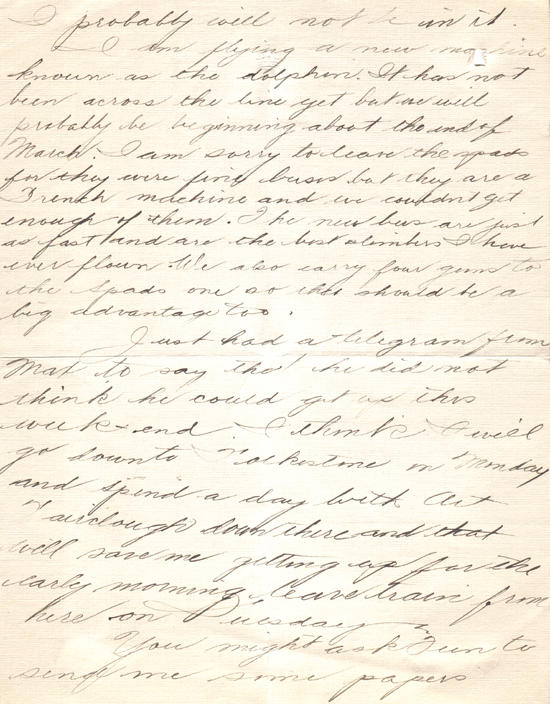 I probably will not be in it.
I am flying a new machine
known as the dolphin. It has not
been across the line yet but we will
probably be beginning about the end of
March. I am sorry to leave the spads
for they were fine buses but they are a
French machine and we couldn't get
enough of them. The new bus are just
as fast and are the best climbers I have
ever flown. We also carry four guns to
the Spads one so this should be a
big advantage too.
Just had a telegram from
Mat to say tho' he did not
think he could get up this
week-end. I think I will
go down to Folkestone on Monday
and spend a day with Art
Fairclough down there and that
will save me getting up for the
early morning leave train from
here on Tuesday
You might ask to
send me some papers